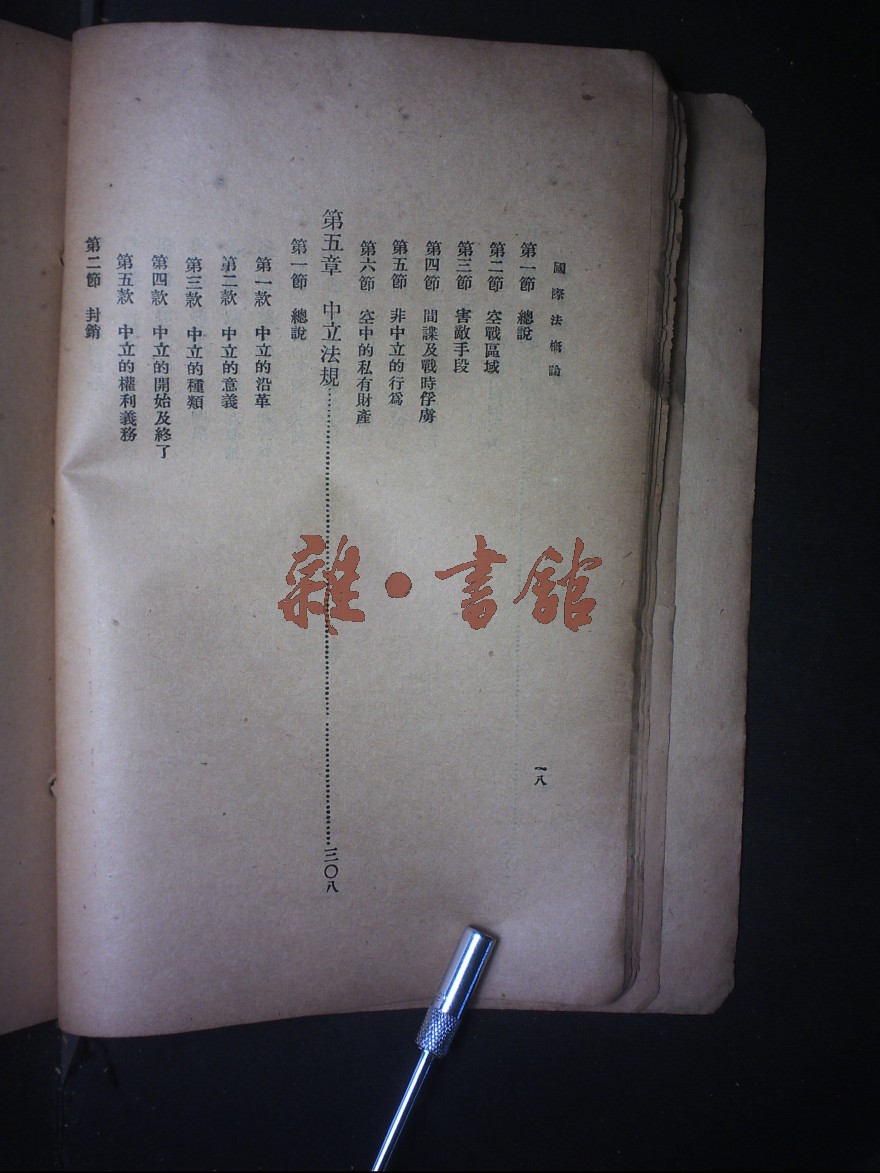 國際法概論
一八
第一節 總說
第二節 空戰區域
第三節 害敵手段
第四節 間諜及戰時俘虜
第五節 非中立的行為
第六節 空中的私有財產
第五章 中立法規……三〇八
第一節 總說
第一款 中立的沿革
第二款 中立的意義
第三款 中立的種類
第四款 中立的開始及終了
第五款 中立的權利義務
第二節 封銷
雜·書館